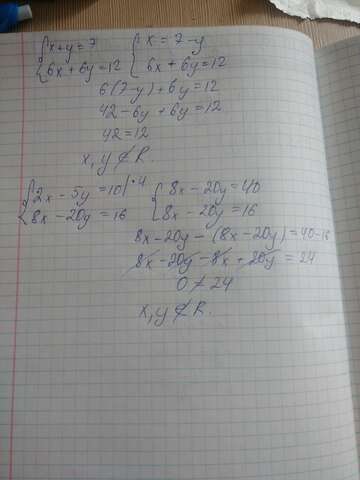 {x+y=7 {x=7-y
{6x+6y=12 {6x+6y=12
6(7-y)+6y=12
42-6y+6y=12
42=12
x,y⊄R.
{2x-5y=10|·4 {8x-20y=40
{8x-20y=16 {8x-20y=16
8x-20y-(8x-20y)=40-16
8x-20y-8x+20y=24
0≠24
x,y⊄R.